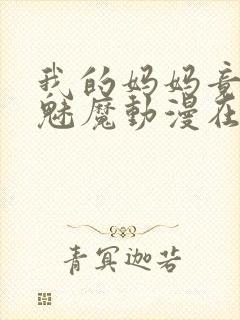 我的妈妈竟
魅魔動漫在
青冥迦若